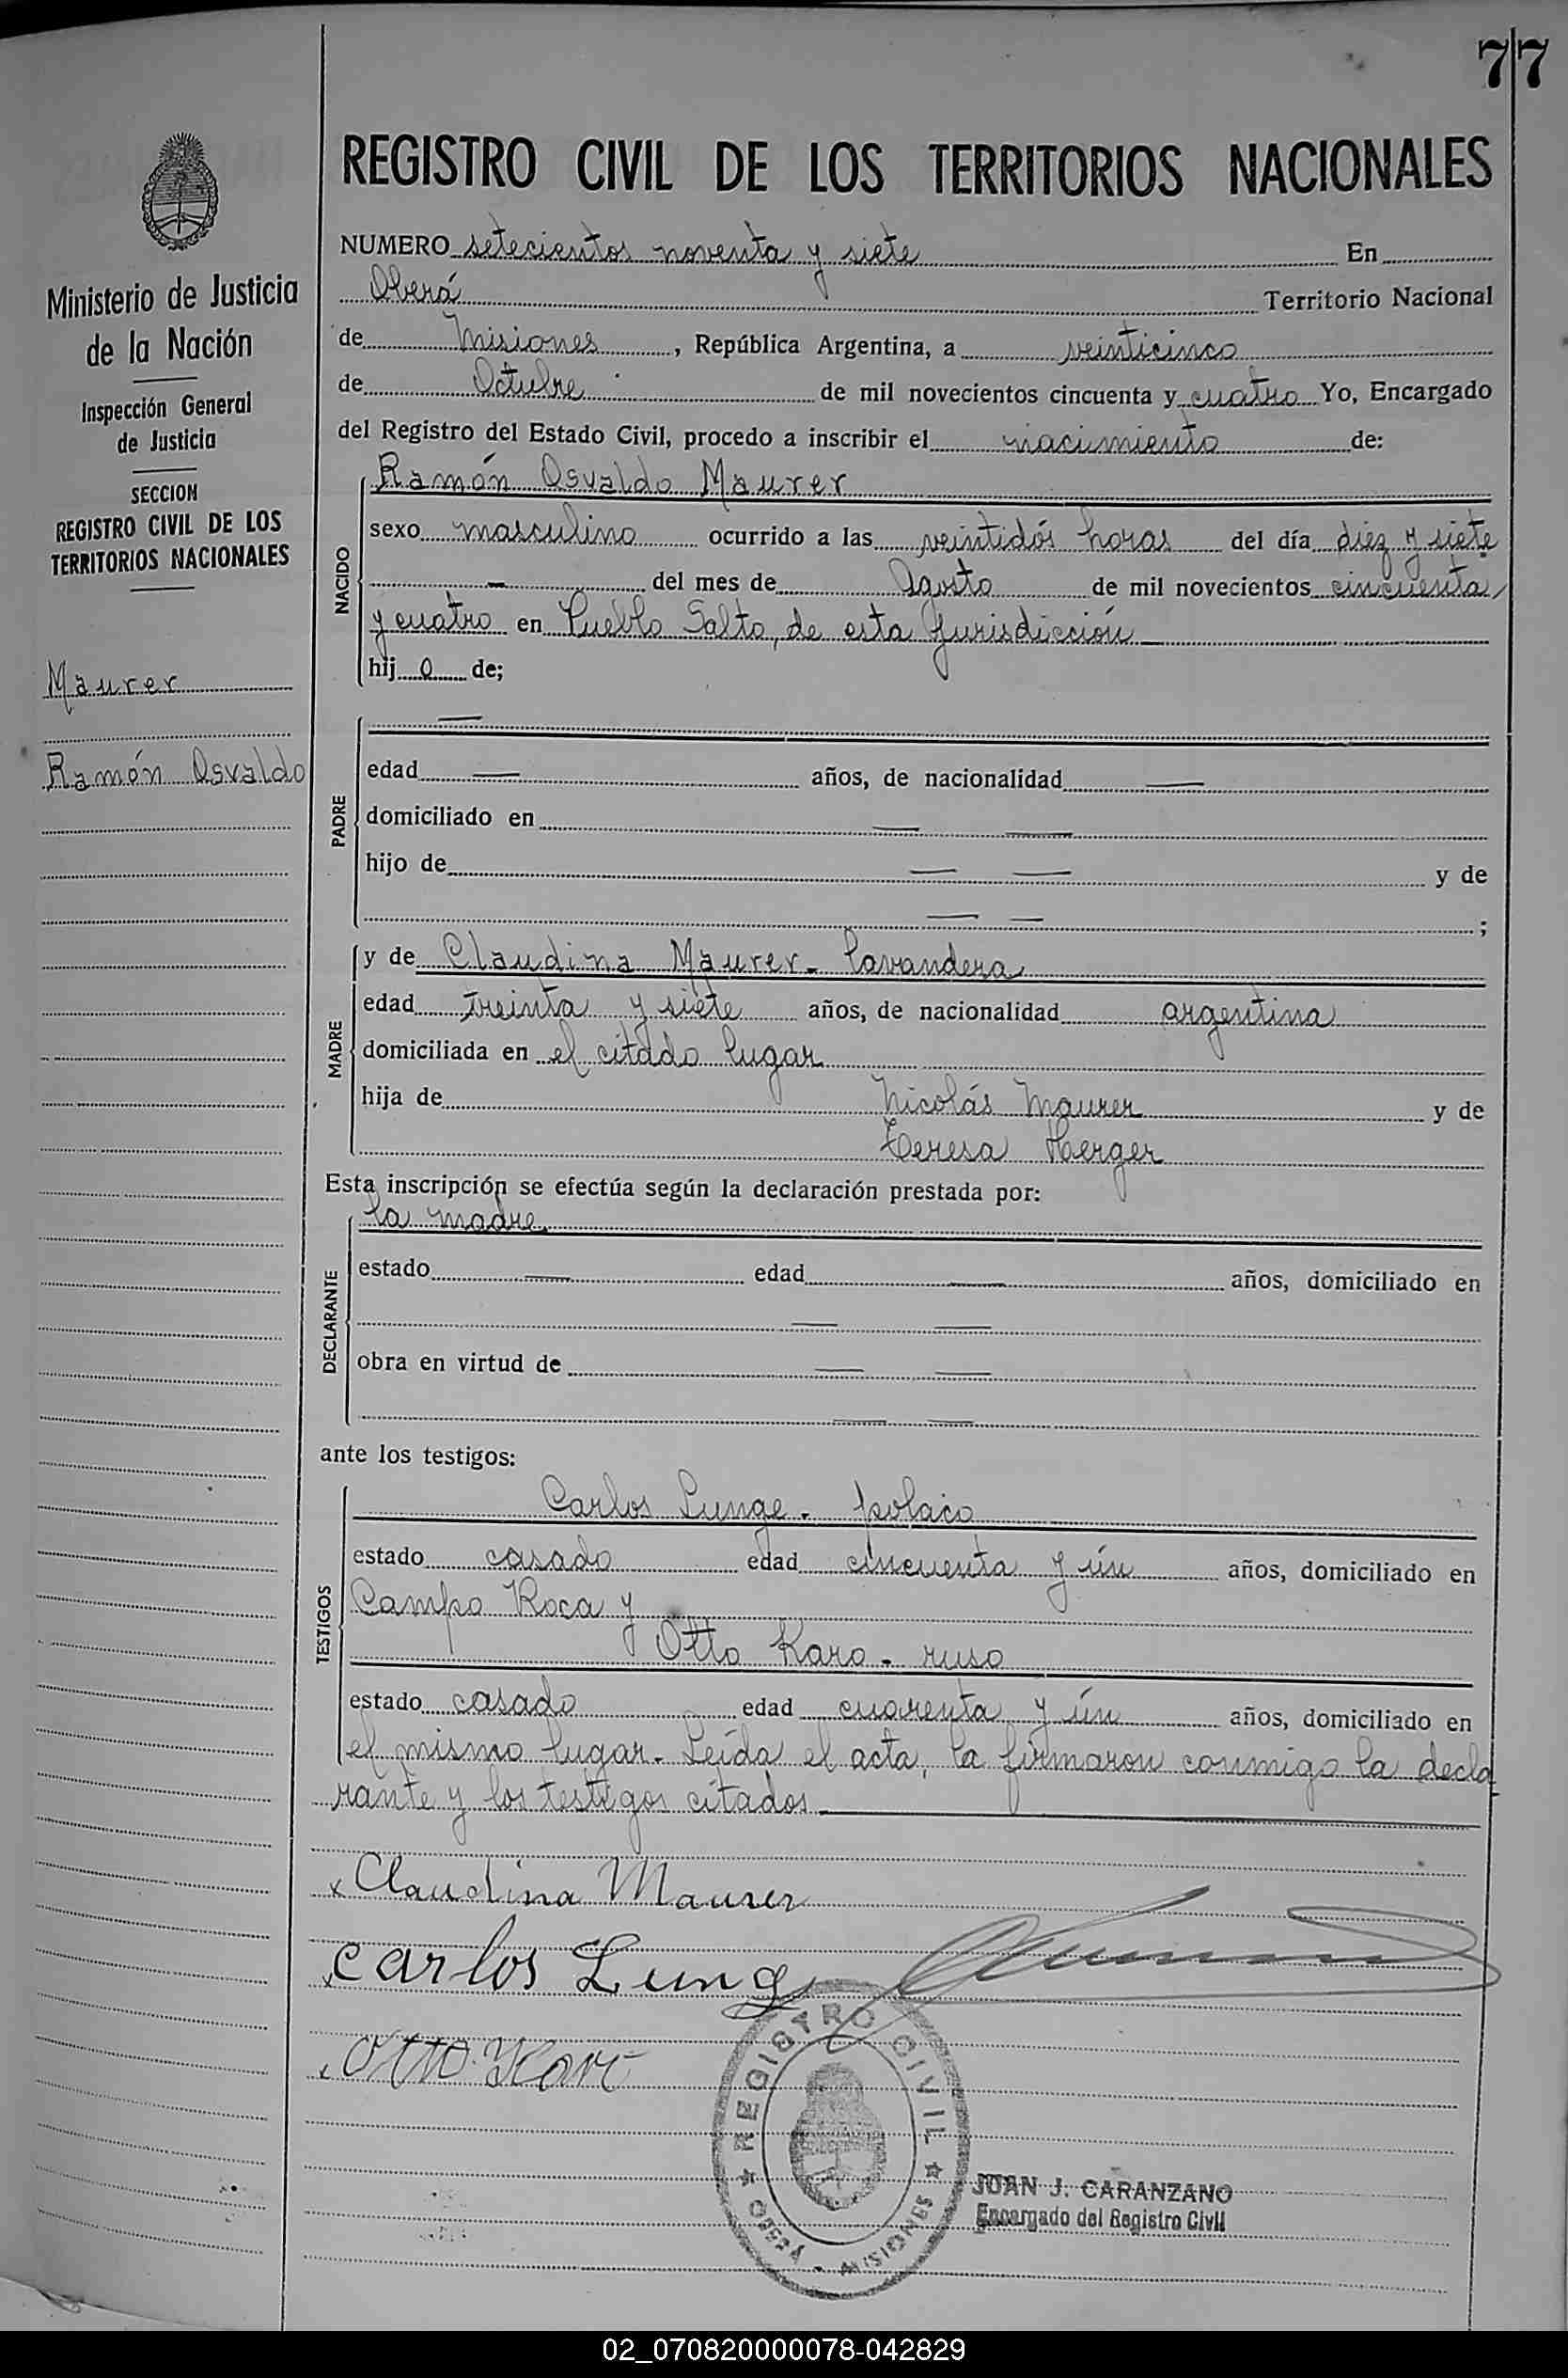 77
REGISTRO CIVIL DE LOS TERRITORIOS NACIONALES
Ministerio de Justicia
de la Nación
Inspección General
de Justicia
SECCION
REGISTRO CIVIL DE LOS
TERRITORIOS NACIONALES
Maurer
Ramón Osvaldo
NUMERO setecientos noventa y siete En
Oberá Territorio Nacional
de Misiones, República Argentina, a veinticinco
de Octubre de mil novecientos cincuenta y cuatro Yo, Encargado
del Registro del Estado Civil, procedo a inscribir el nacimiento de:
NACIDO
Ramón Osvaldo Maurer
sexo masculino ocurrido a las veintidós horas del día diez y siete
— del mes de Agosto de mil novecientos cincuenta
y cuatro en Pueblo Salto, de esta Jurisdicción
hij o de;
PADRE
—
edad — años, de nacionalidad —
domiciliado en — —
hijo de — — y de
— — ;
MADRE
y de Claudina Maurer - Lavandera
edad treinta y siete años, de nacionalidad argentina
domiciliada en el citado lugar
hija de Nicolás Maurer y de
Teresa Herger
Esta inscripción se efectúa según la declaración prestada por:
DECLARANTE
la madre
estado — edad — años, domiciliado en
— —
obra en virtud de — —
— —
ante los testigos:
TESTIGOS
Carlos Lunge - polaco
estado casado edad cincuenta y ún años, domiciliado en
Campo Roca y
Otto Karo - ruso
estado casado edad cuarenta y ún años, domiciliado en
el mismo lugar - Leída el acta, la firmaron conmigo la decla
rante y los testigos citados
x Claudina Maurer
x Carlos Lung
x Otto Karo
REGISTRO CIVIL
OBERA - MISIONES
JUAN J. CARANZANO
Encargado del Registro Civil
02_070820000078-042829